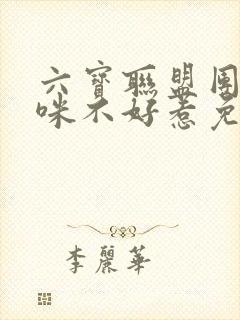 六寶聯盟團
咪不好惹免
李麗華